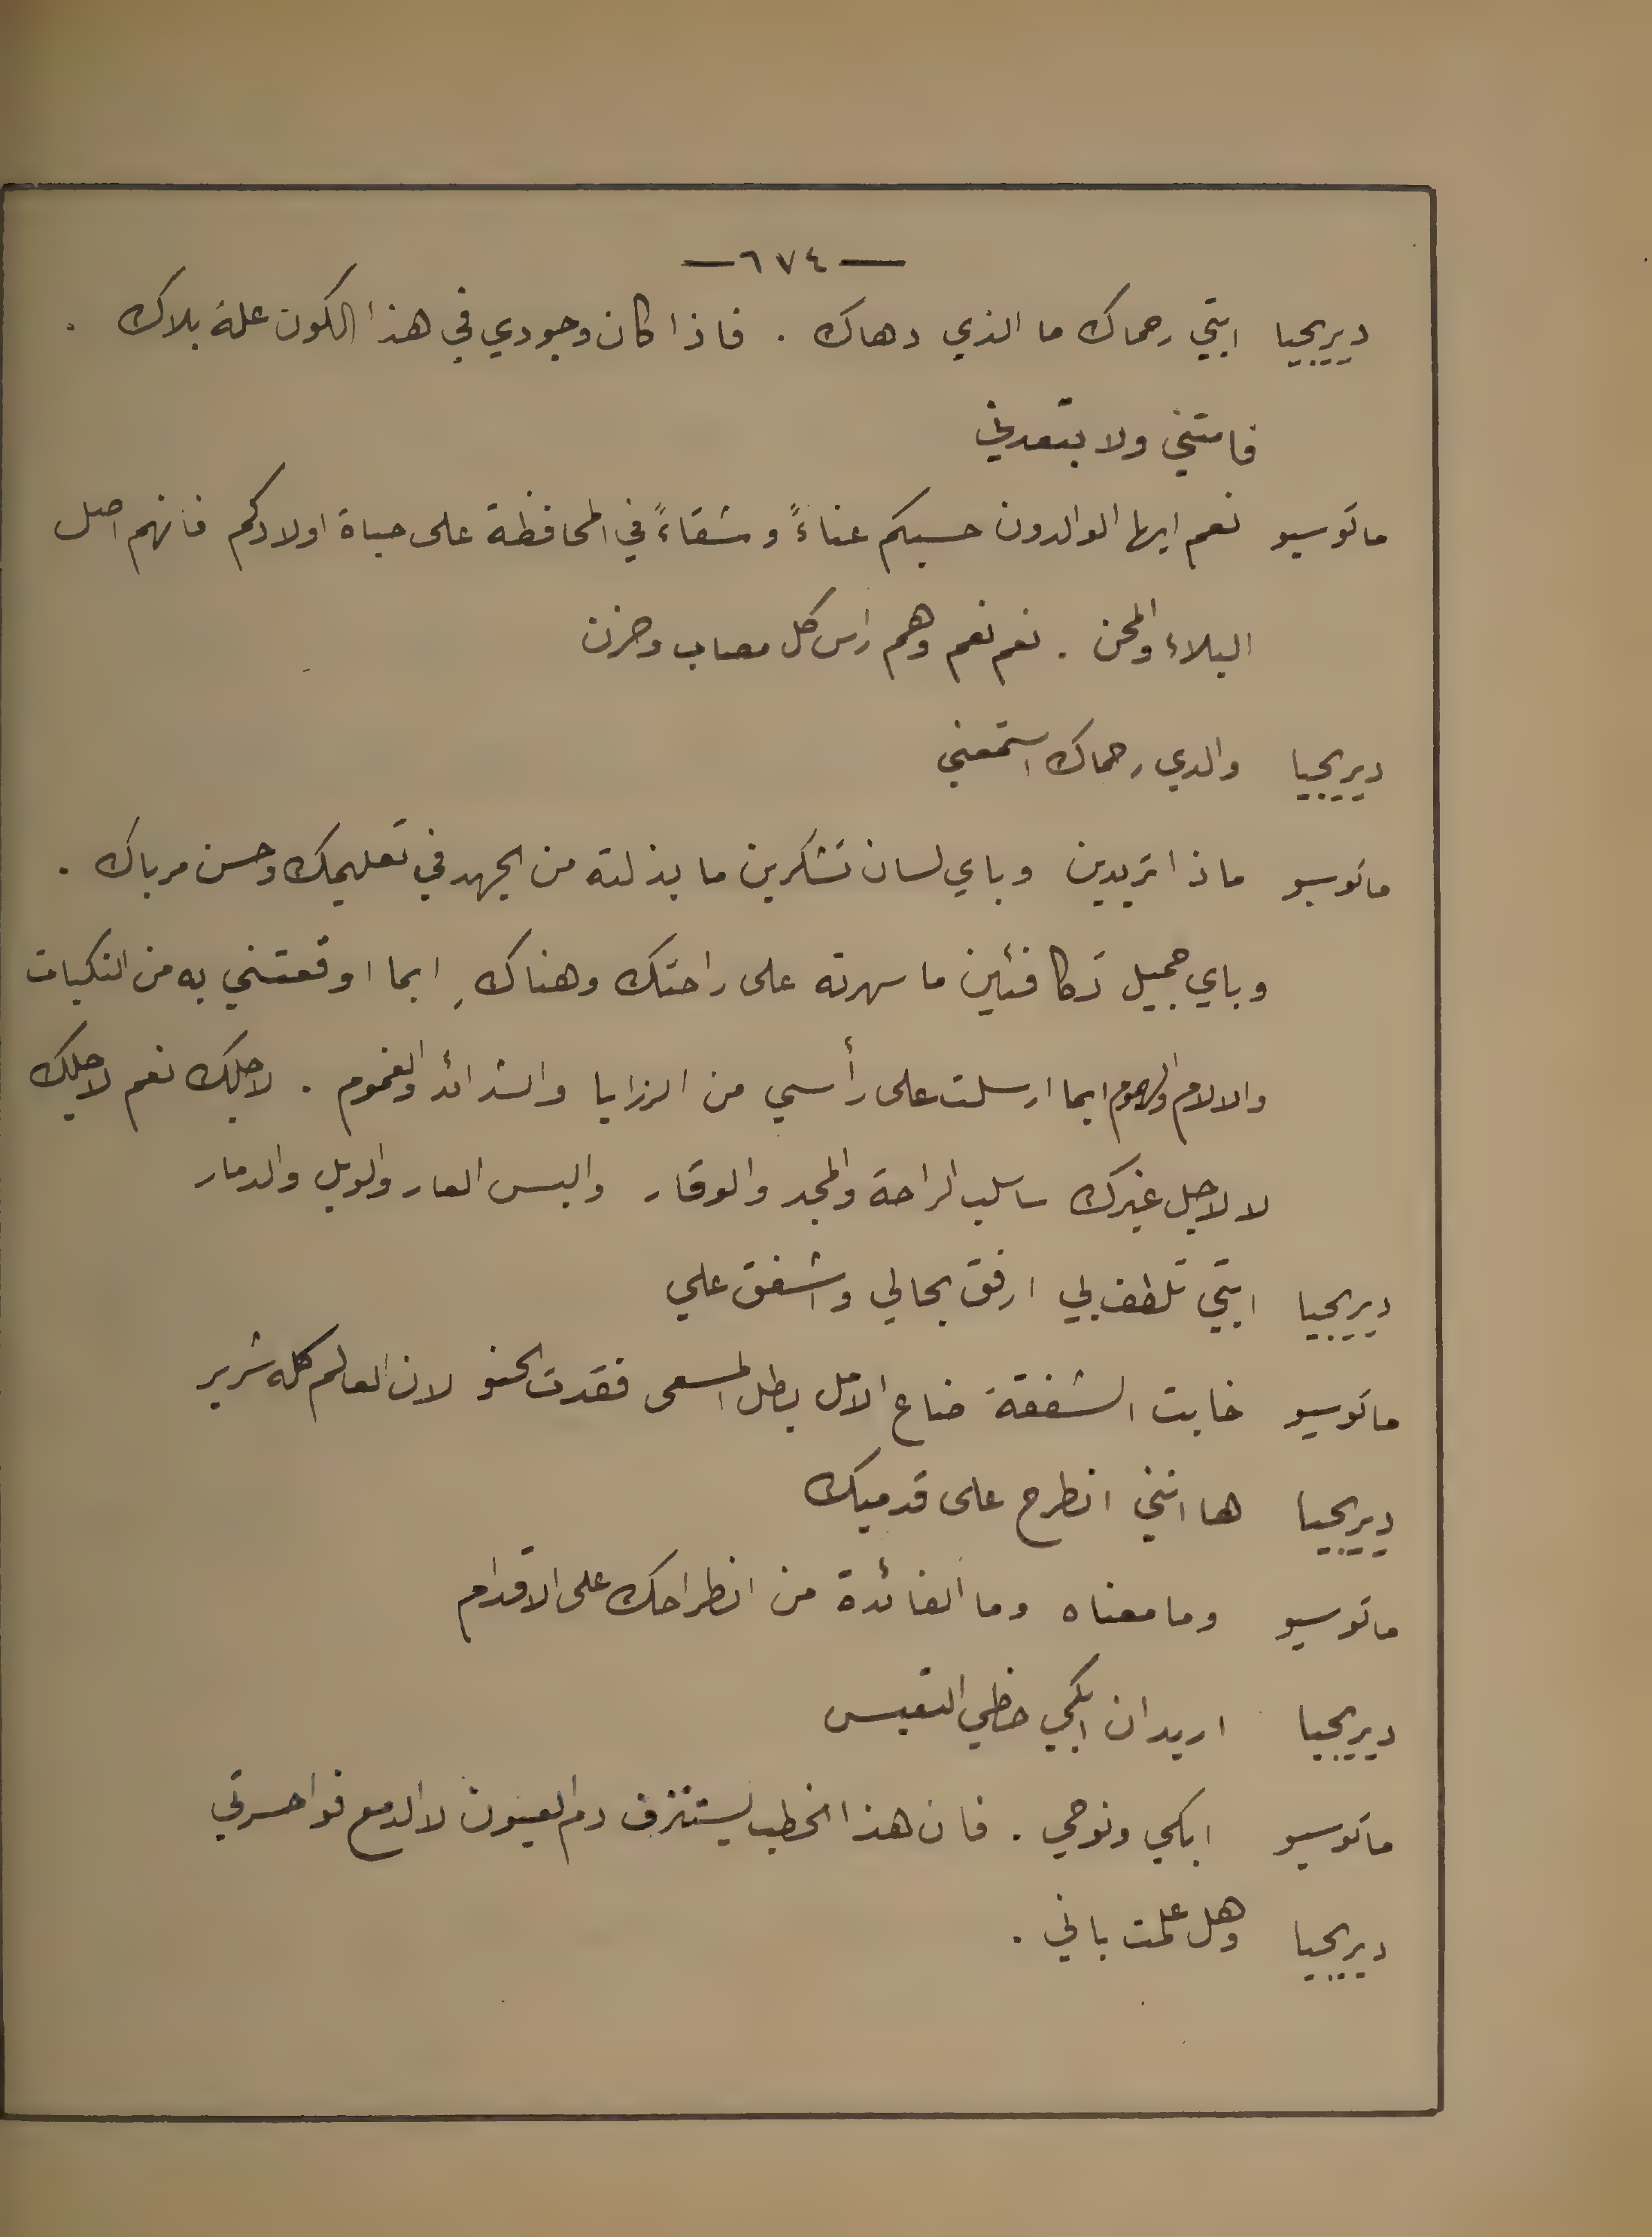 — ٦٧٤ —
ديريجيا ابتي رحماك ما الذي دهاك . فاذا كان وجودي في هذا الكون علة بلاك .
فامتني ولا تبعدني
ماتوسيو نعم ايها الوالدون حسبكم عناءً وشقاءً في المحافظة على حياة اولادكم فانهم اصل
البلاء والمحن . نعم نعم وهم راس كل مصاب وحزن
ديريجيا والدي رحماك استمعني
ماتوسيو ماذا تريدين وباي لسان تشكرين ما بذلته من الجهد في تعليمك وحسن مرباك .
وباي جميل تكافئين ما سهرته على راحتك وهناكِ ابما اوقعتني به من النكبات
والالام والهموم ابما ارسلت على رأسي من الرزايا والشدائد والغموم . لاجلك نعم لاجلك
لا لاجل غيرك ساسلب الراحة والمجد والوقار والبس العار والويل والدمار
ديريجيا ابتي تلطف بي ارفق بحالي واشفق علي
ماتوسيو خابت الشفقة ضاع الامل بطل المسعى فقدت الحنو لان العالم كله شرير
ديريجيا ها انني انطرح على قدميك
ماتوسيو وما معناه وما الفائدة من انطراحك على الاقدام
ديريجيا اريد ان ابكي حظي التعيس
ماتوسيو ابكي ونوحي . فان هذا الخطب ليستنزف دم العيون لا الدمع فوا حسرتي
ديريجيا وهل علمت باني .